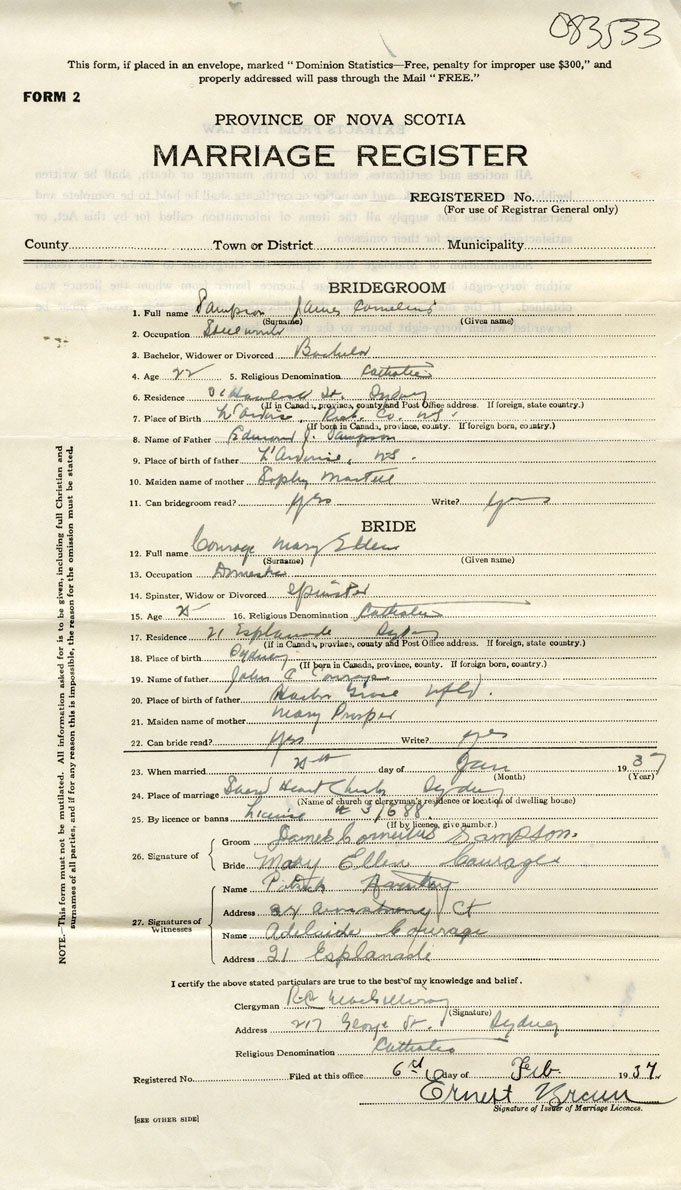 083533
This form, if placed in an envelope, marked "Dominion Statistics—Free, penalty for improper use $300," and
properly addressed will pass through the Mail "FREE."
FORM 2
PROVINCE OF NOVA SCOTIA
MARRIAGE REGISTER
REGISTERED No.
(For use of Registrar General only)
County Town or District Municipality
BRIDEGROOM
1. Full name Sampson James Cornelius
(Surname) (Given name)
2. Occupation Steelworker
3. Bachelor, Widower or Divorced Bachelor
4. Age 22 5. Religious Denomination Catholic
6. Residence St. Sydney
(If in Canada, province, county and Post Office address. If foreign, state country.)
7. Place of Birth L'Ardoise, Rich. Co. N.S.
(If born in Canada, province, county. If foreign born, country.)
8. Name of Father Edmond J. Sampson
9. Place of birth of father L'Ardoise, N.S.
10. Maiden name of mother Sophy Martell
11. Can bridegroom read? Yes Write? Yes
BRIDE
12. Full name Courage Mary Ellen
(Surname) (Given name)
13. Occupation Domestic
14. Spinster, Widow or Divorced Spinster
15. Age 16. Religious Denomination Catholic
17. Residence 21 Esplanade Sydney
(If in Canada, province, county and Post Office address. If foreign, state country.)
18. Place of birth Sydney
(If born in Canada, province, county. If foreign born, country.)
19. Name of father John Courage
20. Place of birth of father Harbor Grace Nfld.
21. Maiden name of mother Mary Prosper
22. Can bride read? Yes Write? Yes
23. When married day of Jan 1937
(Month) (Year)
24. Place of marriage Sacred Heart Church Sydney
(Name of church or clergyman's residence or location of dwelling house)
25. By licence or banns License # 31688
(If by licence, give number.)
26. Signature of
Groom James Cornelius Sampson.
Bride Mary Ellen Courage
27. Signatures of Witnesses
Name Patrick
Address 24 Armstrong Ct
Name Adelaide Courage
Address 21 Esplanade
I certify the above stated particulars are true to the best of my knowledge and belief.
Clergyman
(Signature)
Address 217 George St. Sydney
Religious Denomination Catholic
Registered No. Filed at this office 6 day of Feb 1937
Ernest Brown
Signature of Issuer of Marriage Licences.
[SEE OTHER SIDE]
NOTE.—This form must not be mutilated. All information asked for is to be given, including full Christian and
surnames of all parties, and if for any reason this is impossible, the reason for the omission must be stated.